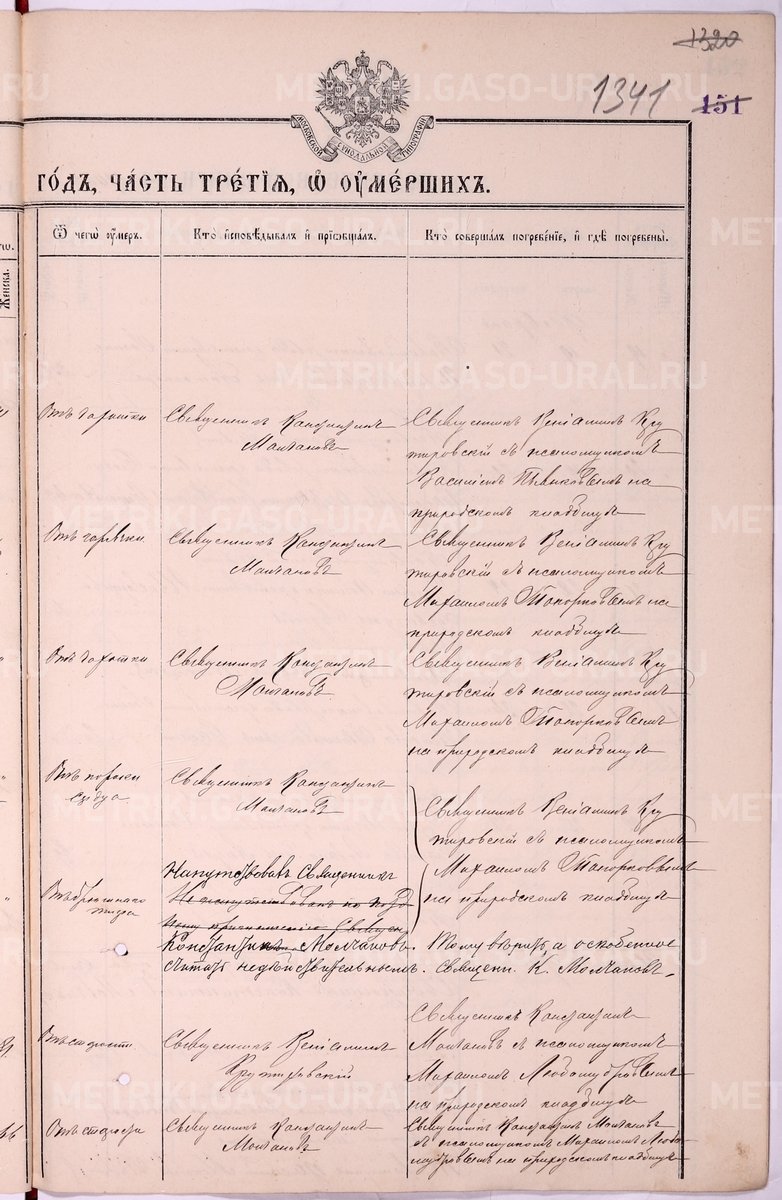 1320
1341
151
МОСКОВСКОЙ СѴНОДАЛЬНОЙ ТИПОГРАФІИ
го́дъ, ча́сть тре́тїѧ, ѡ҆ ᲂу҆ме́ршихъ.
Женска.
Ѿ чегѡ̀ ᲂу҆́меръ.
Кто̀ и҆сповѣ́дывалъ и҆ прїѡбща́лъ.
Кто̀ соверша́лъ погребе́нїе, и҆ гдѣ̀ погребены̀.
Отъ чахотки
Священникъ Константинъ
Молчановъ
Священникъ Веніаминъ Кру
тировскій съ псаломщикомъ
Василіемъ на
природскомъ кладбищѣ
Отъ горячки
Священникъ Константинъ
Молчановъ
Священникъ Веніаминъ Кру
тировскій съ псаломщикомъ
Михаиломъ Топорковымъ на
природскомъ кладбищѣ
Отъ чахотки
Священникъ Константинъ
Молчановъ
Священникъ Веніаминъ Кру
тировскій съ псаломщикомъ
Михаиломъ Топорковымъ
на природскомъ кладбищѣ
Отъ порока
сердца
Священникъ Константинъ
Молчановъ
Священникъ Веніаминъ Кру
тировскій съ псаломщикомъ
Михаиломъ Топорковымъ
на природскомъ кладбищѣ
Отъ брюшнаго
тифа
Напутствовалъ Священникъ
Не напутствованъ по позд
Священ.
Константинъ Молчановъ. Тому вѣрить, а оскобленное
считать недѣйствительнымъ. Священ. К. Молчановъ.
Отъ старости
Священникъ Веніаминъ
Крутировскій
Священникъ Константинъ
Молчановъ съ псаломщикомъ
Михаиломъ Любомудровымъ
на природскомъ кладбищѣ
Отъ старости
Священникъ Константинъ
Молчановъ
Священникъ Константинъ Молчановъ
съ псаломщикомъ Михаиломъ Любо
мудровымъ на природскомъ кладбищѣ
METRIKI.GASO-URAL.RU